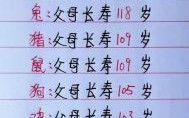 兔:父母长寿118岁
猪:父母长寿109岁
鼠:父母长寿109岁
狗:父母长寿105岁
鸡:父母长寿103岁